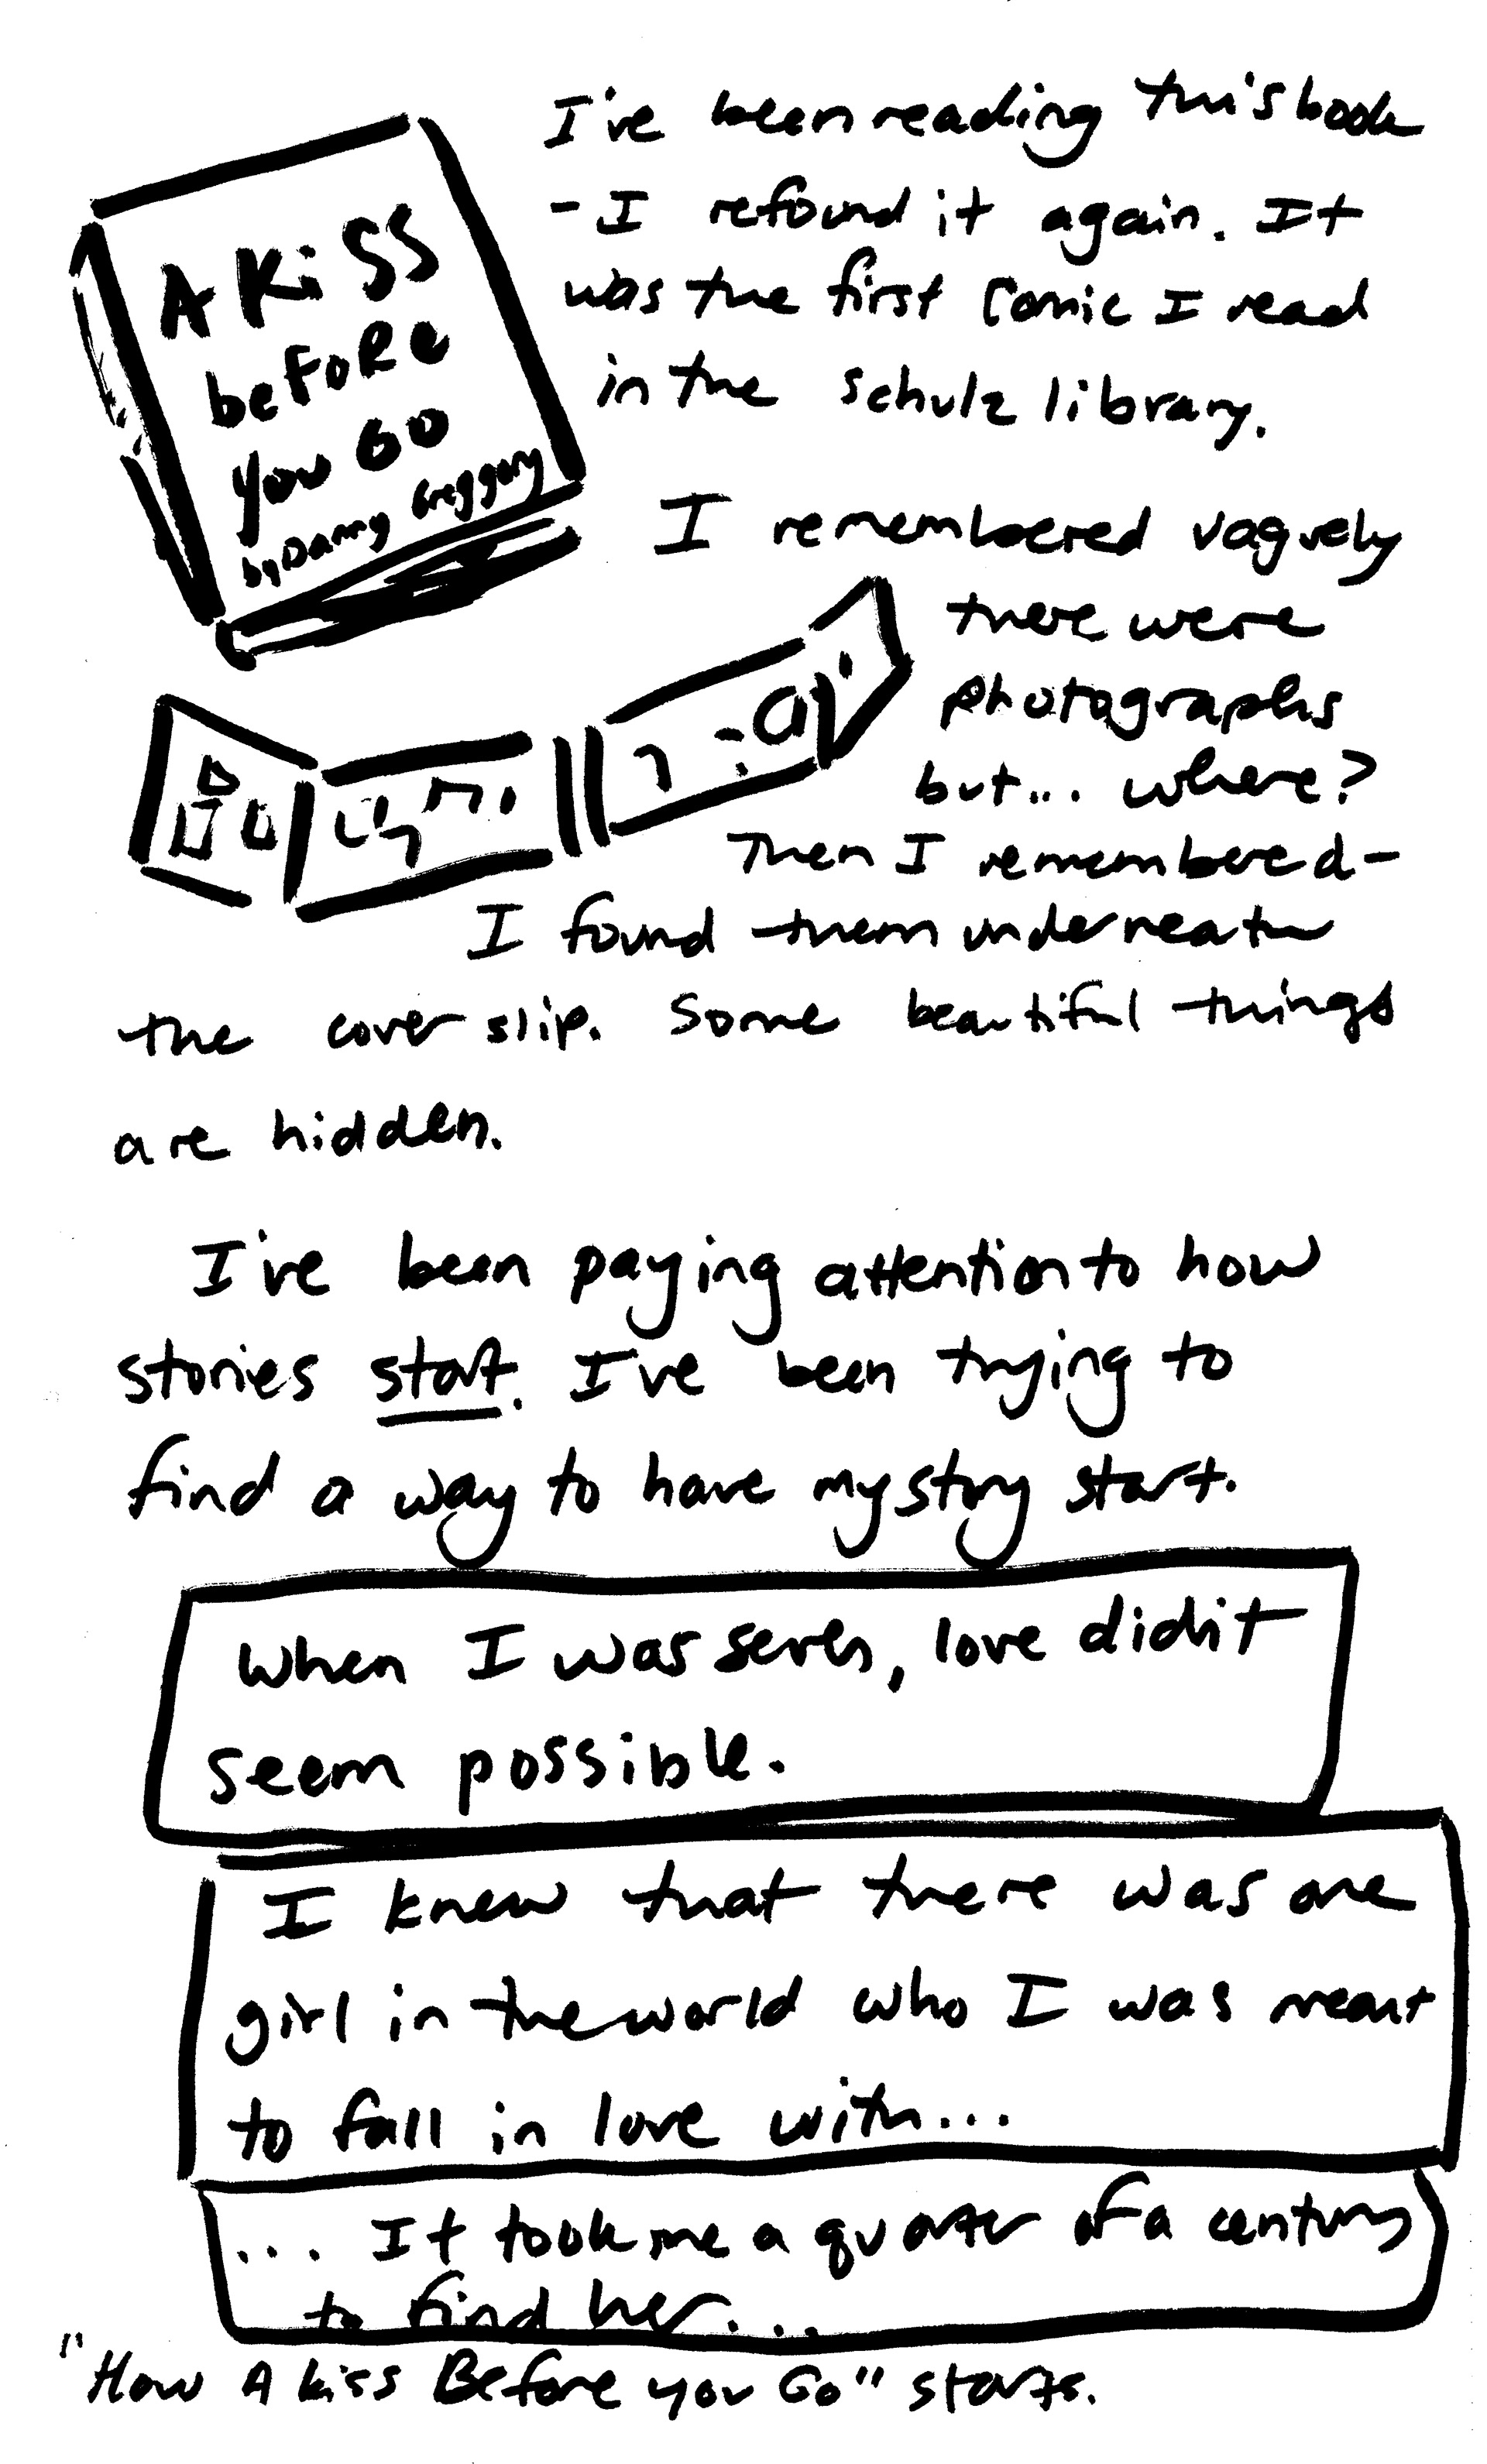 A Kiss
before
you GO
by Danny Greggory
I've been reading this book
- I refound it again. It
was the first comic I read
in the Schulz library.
I remembered vaguely
there were
photographs
but... where?
Then I remembered-
I found them underneath
the cover slip. Some beautiful things
are hidden.
I've been paying attention to how
stories start. I've been trying to
find a way to have my story start.
When I was seven, love didn't
seem possible.
I knew that there was one
girl in the world who I was meant
to fall in love with...
... It took me a quarter of a century
to find her...
"How A kiss Before you Go" starts.